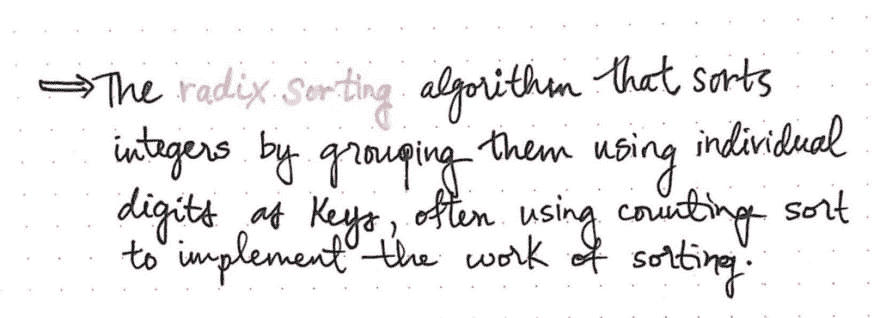 ⇒ The radix sorting algorithm that sorts
integers by grouping them using individual
digits as keys, often using counting sort
to implement the work of sorting.